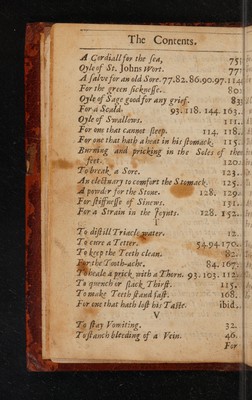 The Contents.
A Cordiall for the sea, 75
Oyle of St. Johns Wort. 77
A salve for an old Sore. 77.82.86.90.97.114
For the green sicknesse. 80
Oyle of Sage good for any grief. 83
For a Scald. 93. 118. 144. 163.
Oyle of Swallows. 111.
For one that cannot sleep. 114. 118.
For one that hath a heat in his stomack. 115.
Burning and pricking in the Soles of the
feet. 120.
To break a Sore. 123.
An electuary to comfort the Stomach. 125.
A powder for the Stone. 128. 129.
For stiffnesse of Sinews. 131.
For a Strain in the Joynts. 128. 152.
T
To distill Triacle water. 12.
To cure a Tetter. 54.94.170.
To keep the Teeth clean. 82.
For the Tooth-ache. 84. 167.
To heale a prick with a Thorn. 93. 103. 112.
To quench or slack Thirst. 115.
To make Teeth stand fast. 168.
For one that hath lost his Taste. ibid.
V
To stay Vomiting. 32.
To stanch bleeding of a Vein. 46.
For